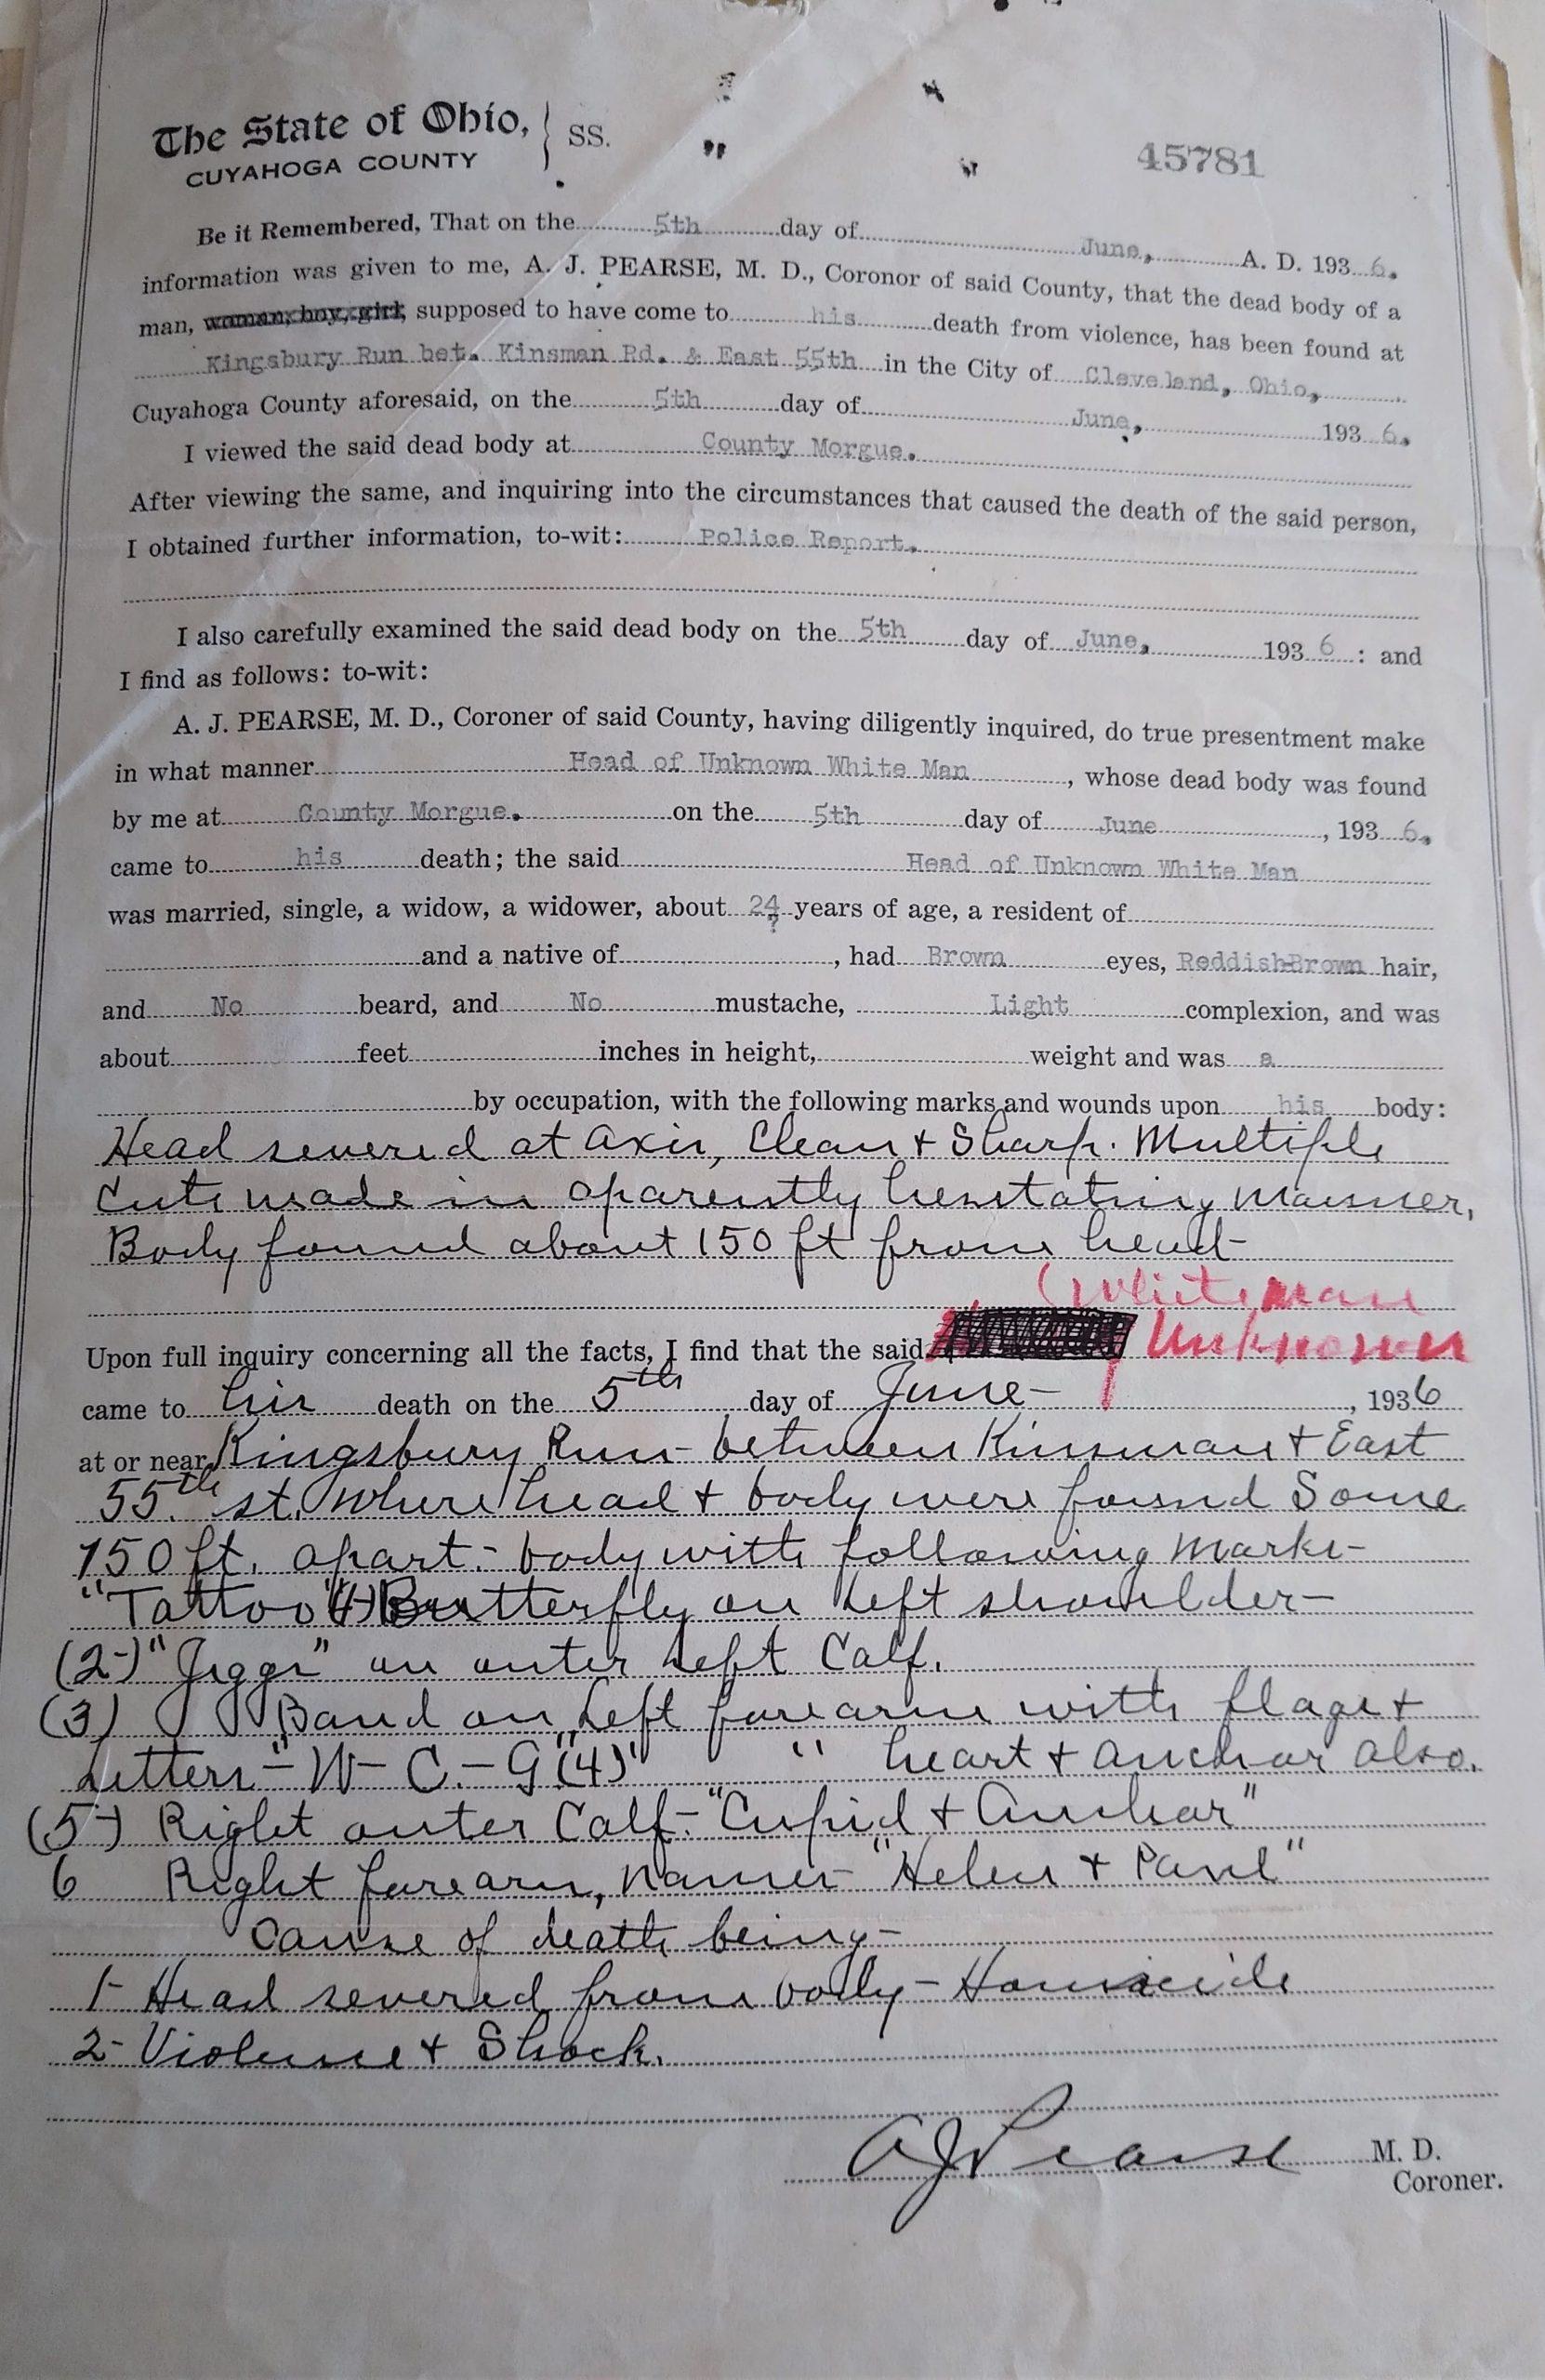 The State of Ohio, } SS.
CUYAHOGA COUNTY
45781
Be it Remembered, That on the 5th day of June, A. D. 193 6.
information was given to me, A. J. PEARSE, M. D., Coronor of said County, that the dead body of a
man, woman, boy, girl, supposed to have come to his death from violence, has been found at
Kingsbury Run bet. Kinsman Rd. & East 55th in the City of Cleveland, Ohio,
Cuyahoga County aforesaid, on the 5th day of June, 193 6.
I viewed the said dead body at County Morgue.
After viewing the same, and inquiring into the circumstances that caused the death of the said person,
I obtained further information, to-wit: Police Report.
I also carefully examined the said dead body on the 5th day of June, 193 6 : and
I find as follows: to-wit:
A. J. PEARSE, M. D., Coroner of said County, having diligently inquired, do true presentment make
in what manner Head of Unknown White Man , whose dead body was found
by me at County Morgue. on the 5th day of June , 193 6.
came to his death; the said Head of Unknown White Man
was married, single, a widow, a widower, about 24 years of age, a resident of
?
and a native of , had Brown eyes, Reddish-Brown hair,
and No beard, and No mustache, Light complexion, and was
about feet inches in height, weight and was a
by occupation, with the following marks and wounds upon his body:
Head severed at axis, Clean & Sharp. Multiple
cuts made in aparently hesitating manner.
Body found about 150 ft from head-
White man
Upon full inquiry concerning all the facts, I find that the said Unknown
came to his death on the 5th day of June- , 1936
at or near Kingsbury Run - between Kinsman & East
55th st. where head & body were found Some
150 ft. apart.- body with following marks-
"Tattoo" (1) Butterfly on left shoulder-
(2-) "Jiggs" on outer left Calf.
(3) Band on Left forearm with flags &
Letters-"W-C.-G" (4) " " heart & anchor also.
(5-) Right outer Calf-"Cupid & Anchor"
6 Right forearm, names- "Helen & Paul"
Cause of death being-
1- Head severed from body- Homicide
2- Violence & Shock.
A J Pearse M. D.
Coroner.